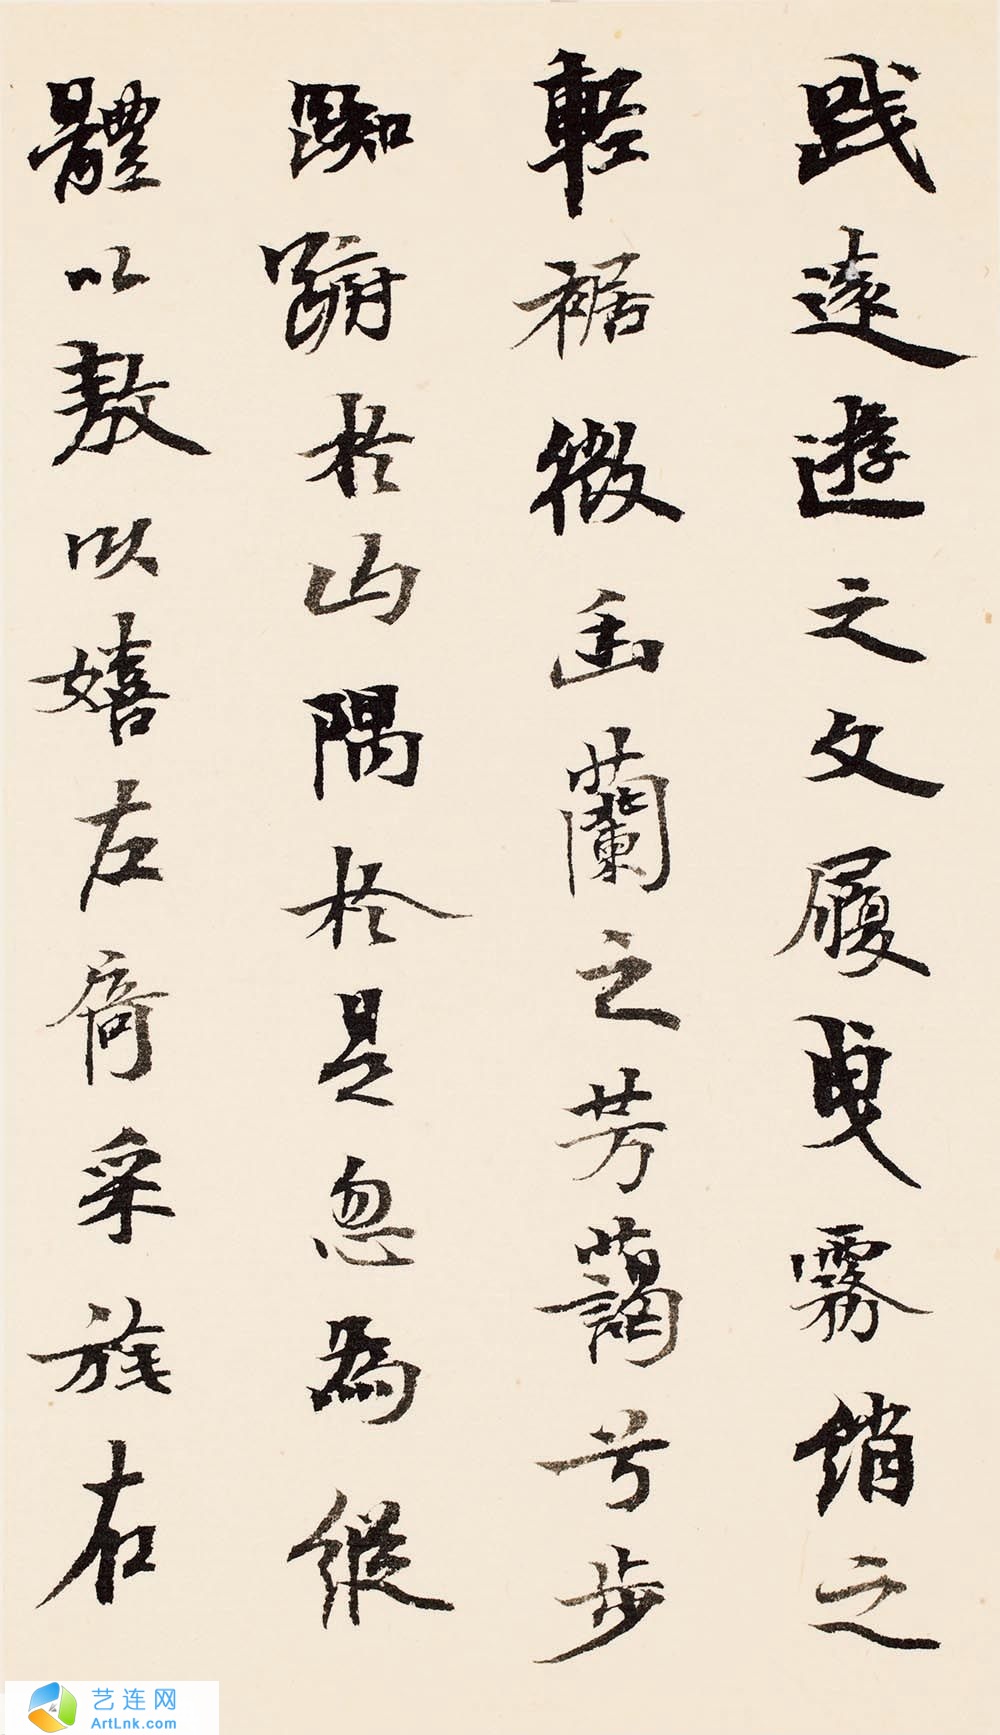 践遠遊之文履曳霧綃之
輕裾微幽蘭之芳藹兮步
踟躕於山隅於是忽焉縱
體以敖以嬉左倚采旄右
艺连网
ArtLnk.com